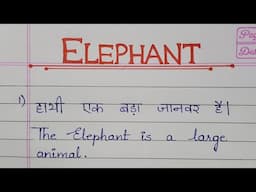 ELEPHANT
1) हाथी एक बड़ा जानवर है।
The Elephant is a large
animal.